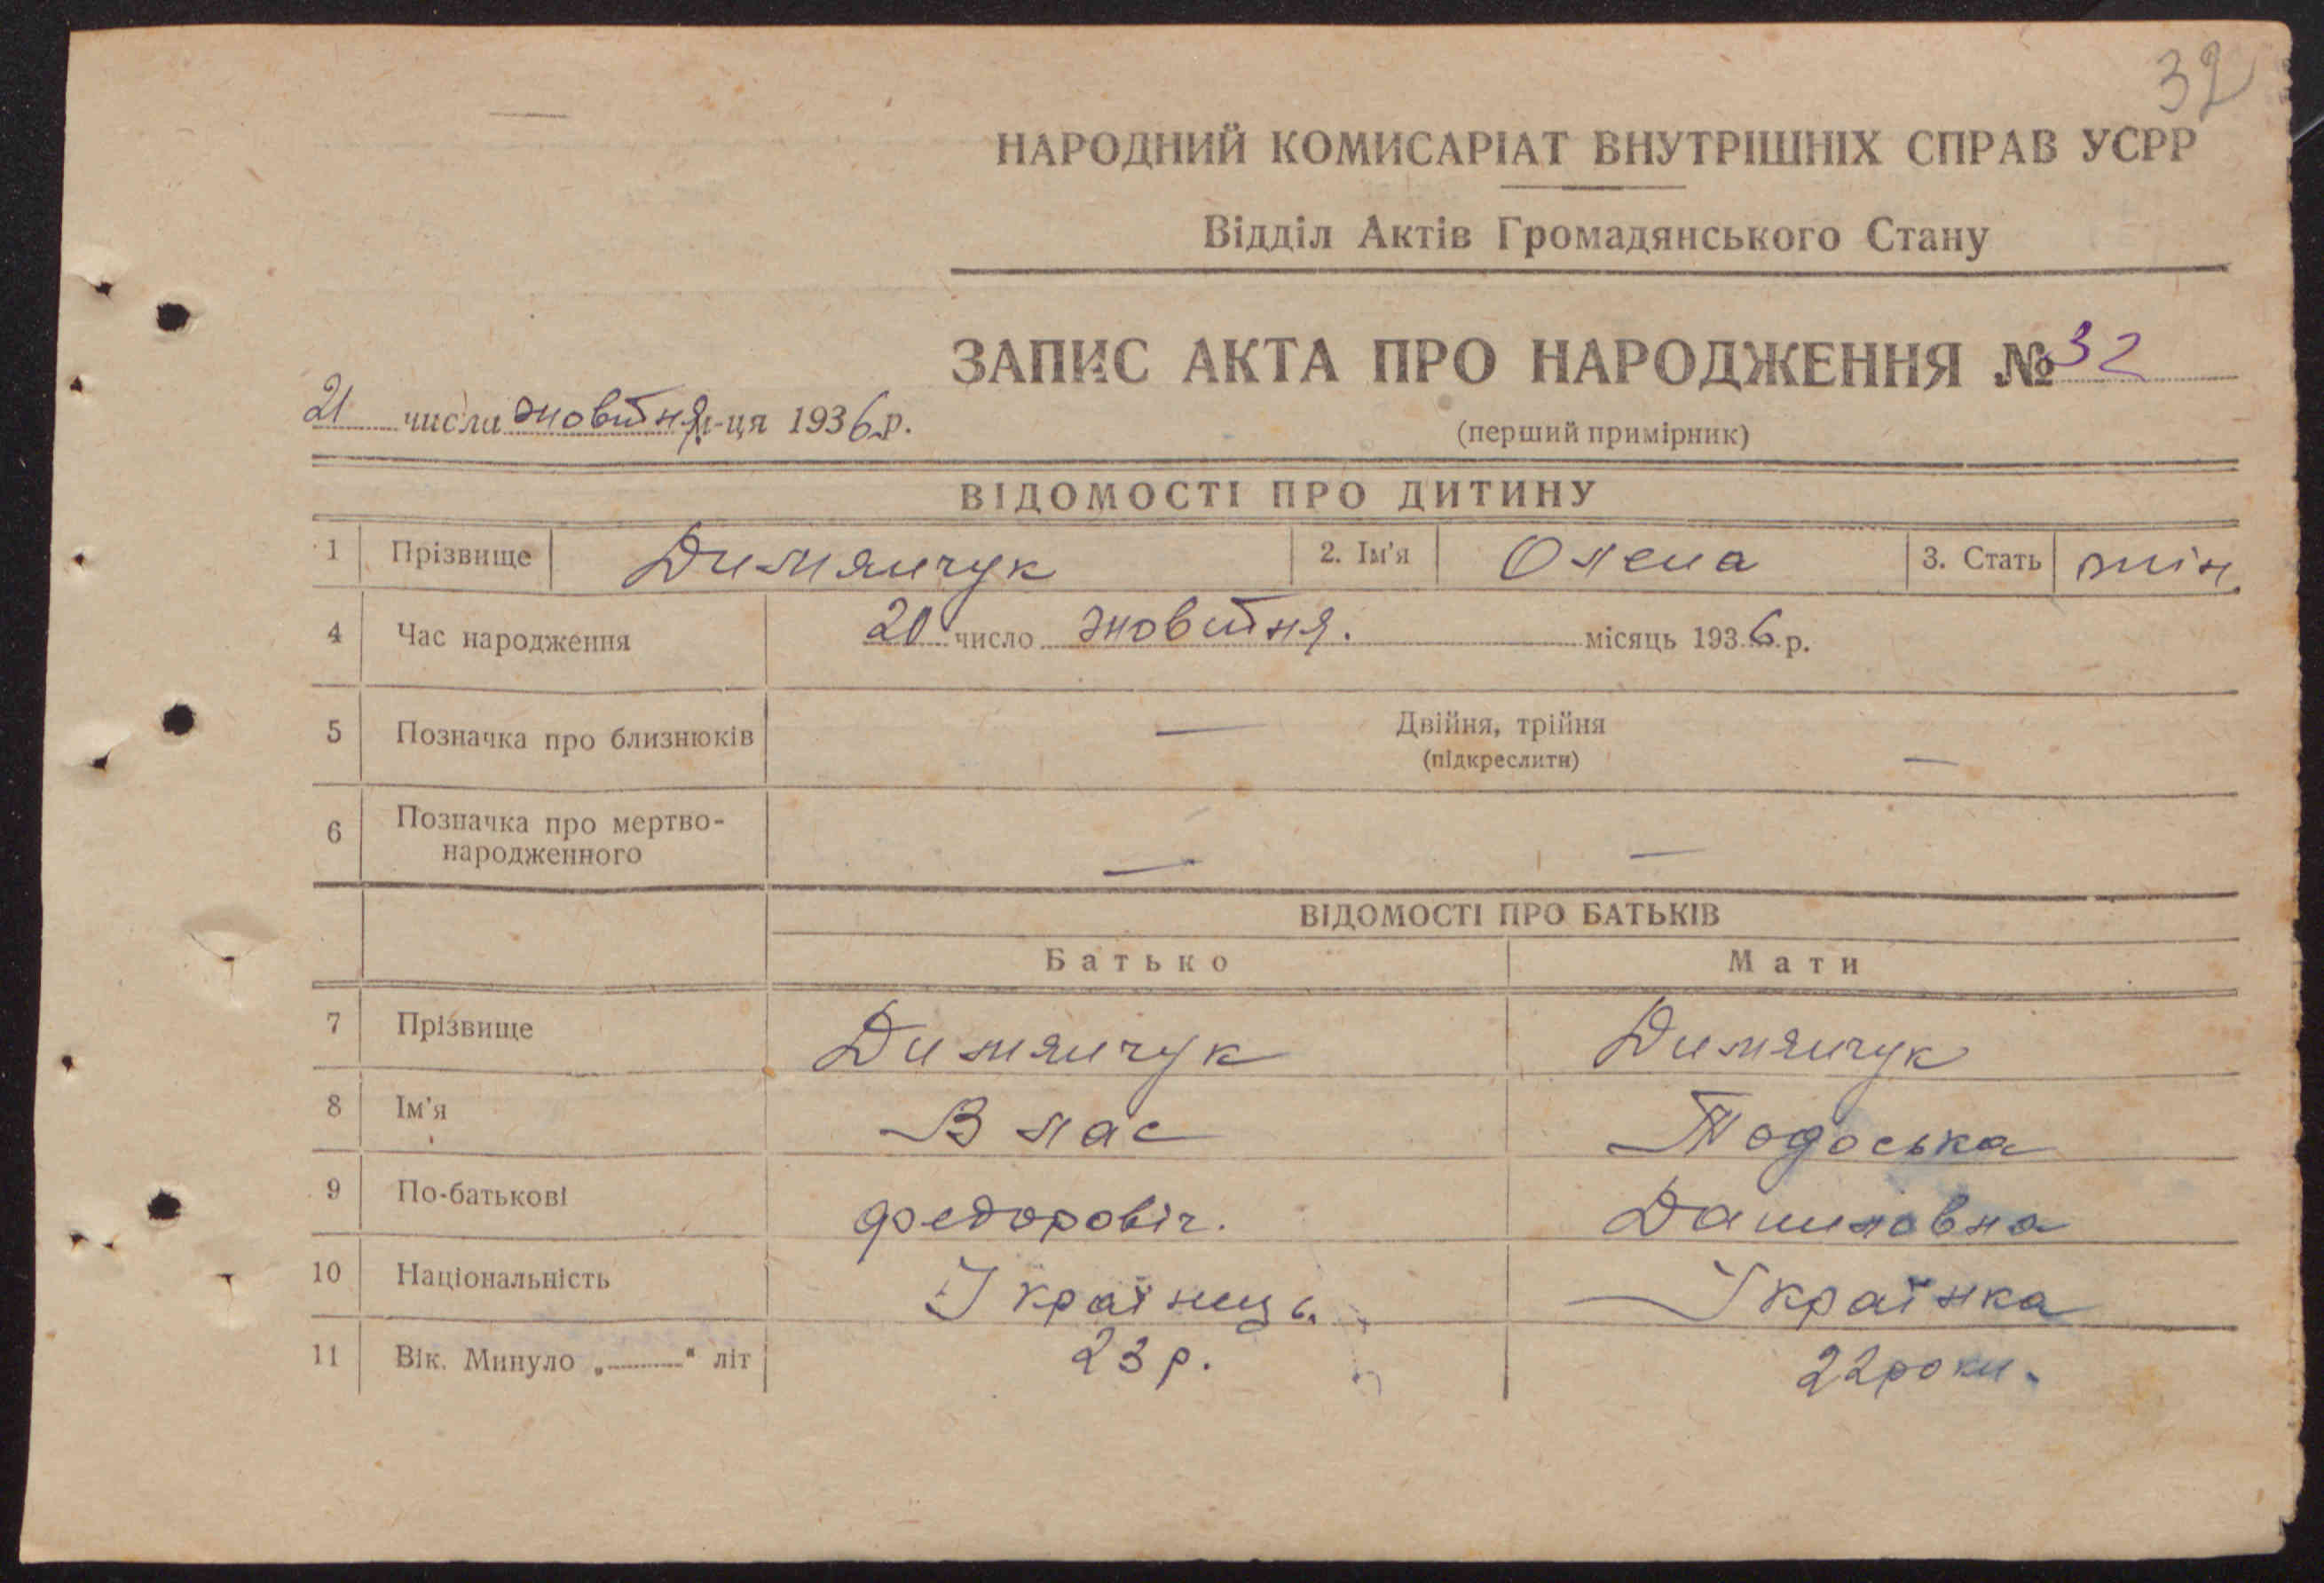 32
НАРОДНИЙ КОМИСАРІАТ ВНУТРІШНІХ СПРАВ УСРР
Відділ Актів Громадянського Стану
ЗАПИС АКТА ПРО НАРОДЖЕННЯ № 32
21 числа жовтня м-ця 1936 р.
(перший примірник)
ВІДОМОСТІ ПРО ДИТИНУ
1 Прізвище Димянчук 2. Ім'я Олена 3. Стать жін.
4 Час народження 20 число жовтня. місяць 1936 р.
5 Позначка про близнюків — Двійня, трійня —
(підкреслити)
6 Позначка про мертво-
народженного — —
ВІДОМОСТІ ПРО БАТЬКІВ
Батько Мати
7 Прізвище Димянчук Димянчук
8 Ім'я Влас Тодоська
9 По-батькові Федоровіч. Даниловна
10 Національність Українець. Українка
11 Вік. Минуло „ “ літ 23 р. 22 роки.